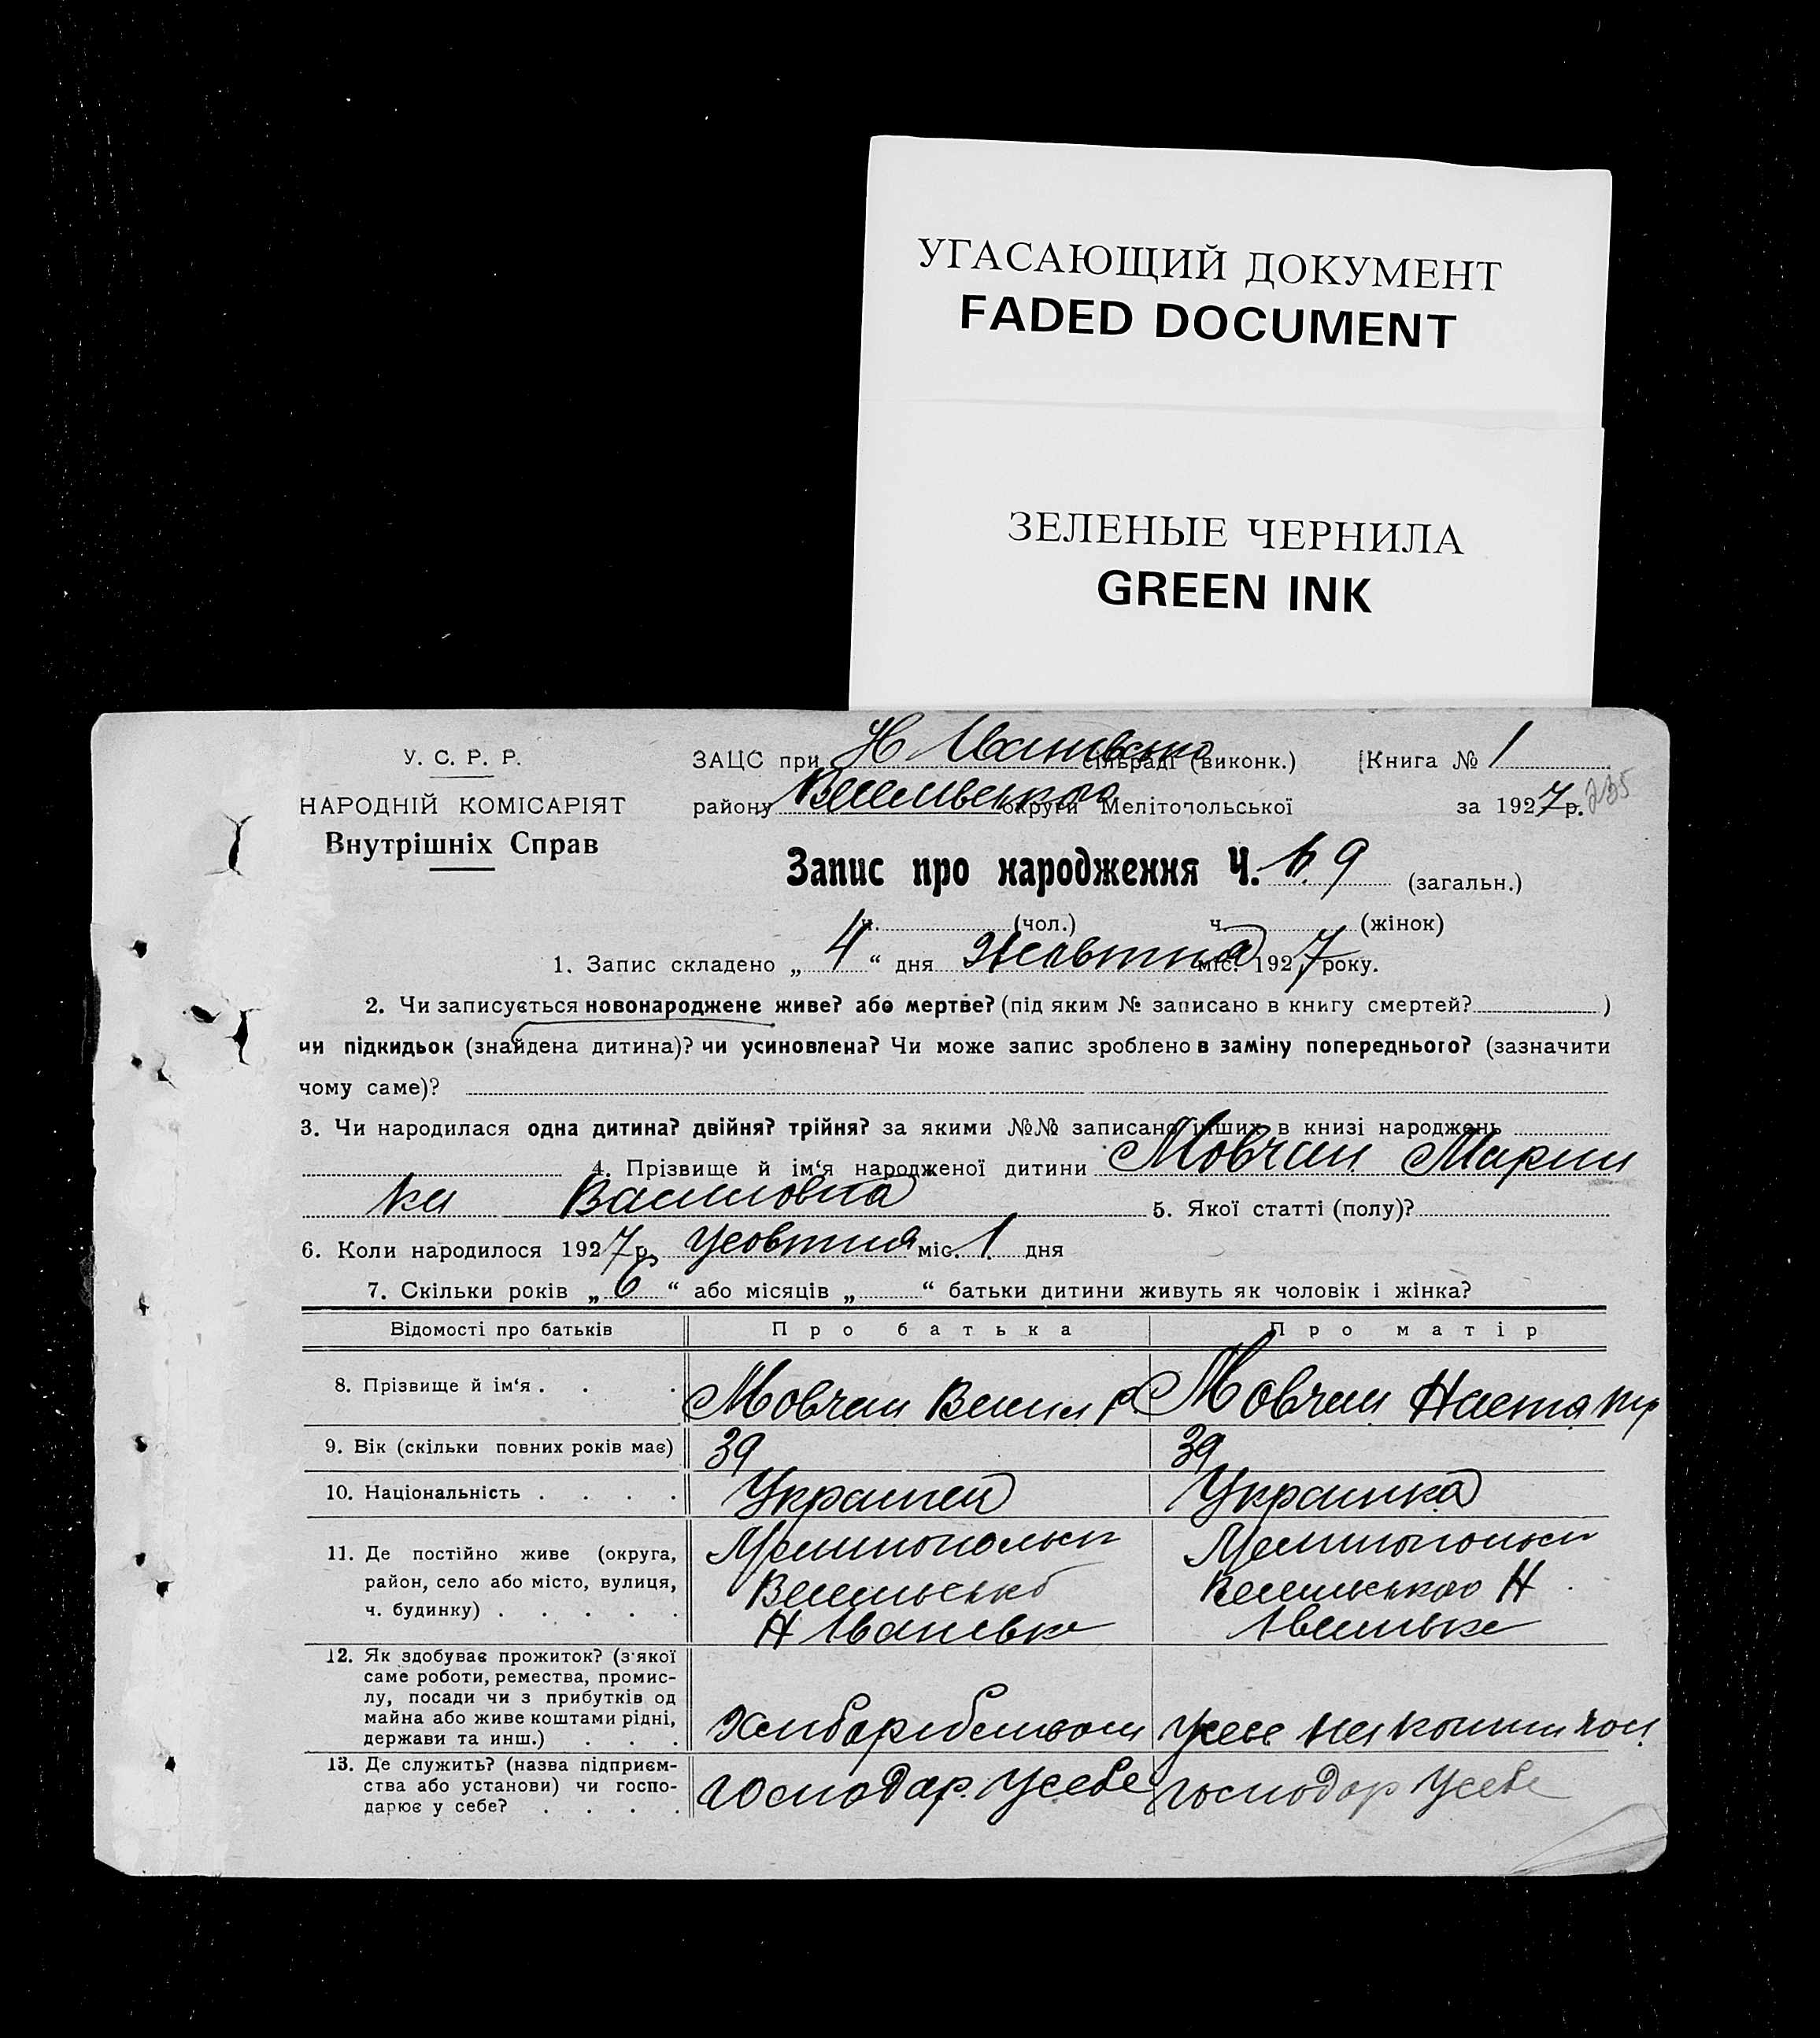 УГАСАЮЩИЙ ДОКУМЕНТ
FADED DOCUMENT
ЗЕЛЕНЫЕ ЧЕРНИЛА
GREEN INK
У. С. Р. Р.
НАРОДНІЙ КОМІСАРІЯТ
Внутрішніх Справ
ЗАЦС при Н Іванівська сільраді (виконк.) [Книга № 1
району Веселівського округи Мелітопольської за 1927 р. 235
Запис про народження Ч. 69 (загальн.)
ч. (чол.) ч. (жінок)
1. Запис складено „ 4 “ дня Жовтня міс. 1927 року.
2. Чи записується новонароджене живе? або мертве? (під яким № записано в книгу смертей? )
чи підкидьок (знайдена дитина)? чи усиновлена? Чи може запис зроблено в заміну попереднього? (зазначити
чому саме)?
3. Чи народилася одна дитина? двійня? трійня? за якими №№ записано інших в книзі народжень
4. Прізвище й ім‘я народженої дитини Мовчан Марий
ка Василовна 5. Якої статті (полу)?
6. Коли народилося 1927 р. Жовтня міс. 1 дня
7. Скільки років „ 6 “ або місяців „ “ батьки дитини живуть як чоловік і жінка?
Відомості про батьків Про батька Про матір
8. Прізвище й ім‘я . . . Мовчан Васил Мовчан Настя
9. Вік (скільки повних років має) 39 39
10. Національність . . . . Українец Українка
11. Де постійно живе (округа, Мелитопольск Мелитопольск
район, село або місто, вулиця, Веселівсько Веселивського Н
ч. будинку) . . . . . Н Іванівка Іванівка
12. Як здобуває прожиток? (з'якої
саме роботи, ремества, промис-
лу, посади чи з прибутків од
майна або живе коштами рідні,
держави та инш.) . . . Хлиборобством живе на кошти чол.
13. Де служить? (назва підприєм-
ства або установи) чи госпо- господар. усебе господар усебе
дарює у себе? . . . .